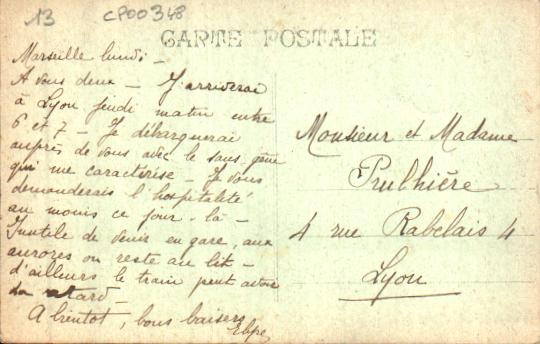 13
CP00348
CARTE POSTALE
Marseille lundi -
A vous deux - J'arriverai
à Lyon jeudi matin entre
6 et 7 - Je débarquerai
auprès de vous avec le sans gêne
qui me caractérise - Je vous
demanderais l'hospitalité
au moins ce jour-là -
Inutile de venir en gare, aux
aurores on reste au lit -
d'ailleurs le train peut avoir
du retard -
A bientôt, bons baisers
Monsieur et Madame
Prulhière
4 rue Rabelais 4
Lyon